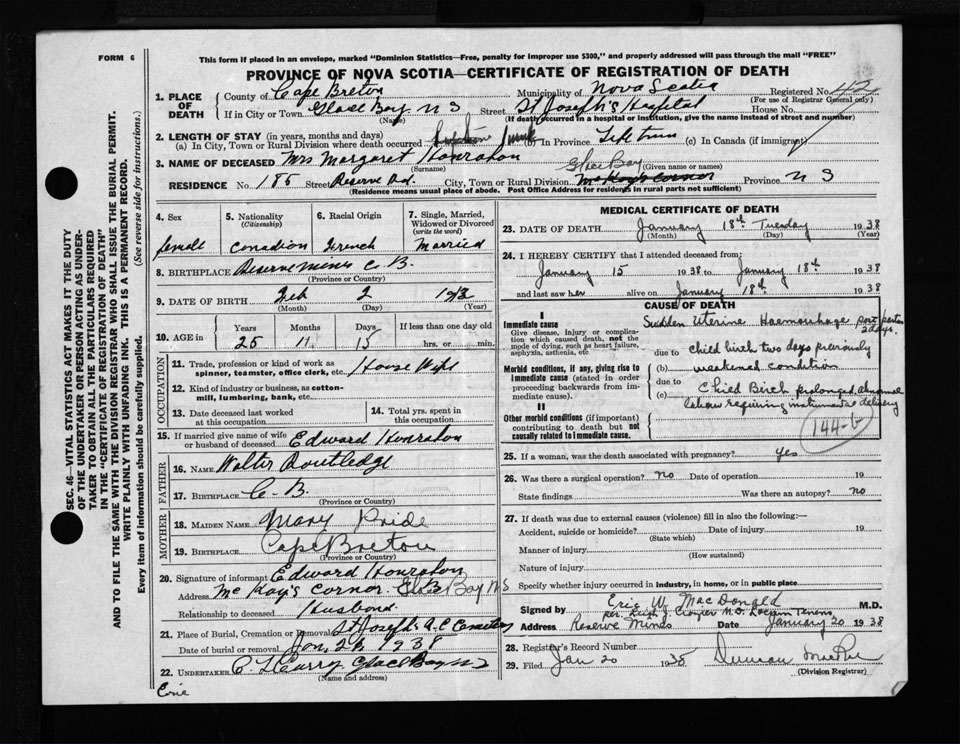 FORM 6
This form if placed in an envelope, marked "Dominion Statistics—Free, penalty for improper use $300," and properly addressed will pass through the mail "FREE"
PROVINCE OF NOVA SCOTIA—CERTIFICATE OF REGISTRATION OF DEATH
SEC. 46—VITAL STATISTICS ACT MAKES IT THE DUTY
OF THE UNDERTAKER OR PERSON ACTING AS UNDER-
TAKER TO OBTAIN ALL THE PARTICULARS REQUIRED
IN THE "CERTIFICATE OF REGISTRATION OF DEATH"
AND TO FILE THE SAME WITH THE DIVISION REGISTRAR WHO SHALL ISSUE THE BURIAL PERMIT.
WRITE PLAINLY WITH UNFADING INK. THIS IS A PERMANENT RECORD.
Every item of information should be carefully supplied. (See reverse side for instructions.)
1. PLACE OF DEATH County of Cape Breton Municipality of Nova Scotia Registered No.
(For use of Registrar General only)
If in City or Town Glace Bay N S Street St Joseph's Hospital House No.
(Name) (If death occurred in a hospital or institution, give the name instead of street and number)
2. LENGTH OF STAY (in years, months and days)
(a) In City, Town or Rural Division where death occurred (b) In Province Life time (c) In Canada (if immigrant)
3. NAME OF DECEASED Mrs Margaret Honrahan
(Surname) (Given name or names)
Glace Bay
RESIDENCE No. 185 Street Reserve Rd. City, Town or Rural Division McKay's Cornor Province N S
(Residence means usual place of abode. Post Office Address for residents in rural parts not sufficient)
4. Sex female
5. Nationality (Citizenship) Conadian
6. Racial Origin French
7. Single, Married, Widowed or Divorced (write the word) Married
8. BIRTHPLACE Reserve Mines C. B.
(Province or Country)
9. DATE OF BIRTH Feb 2
(Month) (Day) (Year)
10. AGE in Years 25 Months 11 Days 15 If less than one day old hrs. or min.
OCCUPATION
11. Trade, profession or kind of work as spinner, teamster, office clerk, etc. House Wife
12. Kind of industry or business, as cotton-mill, lumbering, bank, etc.
13. Date deceased last worked at this occupation
14. Total yrs. spent in this occupation
15. If married give name of wife or husband of deceased Edward Honrahan
FATHER
16. NAME Walter Routledge
17. BIRTHPLACE C. B.
(Province or Country)
MOTHER
18. MAIDEN NAME Mary Pride
19. BIRTHPLACE Cape Breton
(Province or Country)
20. Signature of informant Edward Honrahan
Address McKay's cornor Glace Bay N S
Relationship to deceased Husbond
21. Place of Burial, Cremation or Removal St Joseph's R.C Cemetery
Date of burial or removal Jan, 21 1938
22. UNDERTAKER C L Curry Glace Bay N S
(Name and address)
MEDICAL CERTIFICATE OF DEATH
23. DATE OF DEATH January 18th Tuesday 1938
(Month) (Day) (Year)
24. I HEREBY CERTIFY that I attended deceased from:
January 15 1938 to January 18th 1938
and last saw her alive on January 18th 1938
CAUSE OF DEATH
I
Immediate cause
Give disease, injury or complication which caused death, not the mode of dying, such as heart failure, asphyxia, asthenia, etc
Sudden Uterine Haemorrhage post partum 2 days.
due to child birth two days previously
Morbid conditions, if any, giving rise to immediate cause (stated in order proceeding backwards from immediate cause).
(b) weakened condition
due to
(c) Child Birth prolonged, abnormal
labour requiring instrumental delivery
II
Other morbid conditions (if important) contributing to death but not causally related to immediate cause.
144-b
25. If a woman, was the death associated with pregnancy? yes
26. Was there a surgical operation? no Date of operation 19
State findings Was there an autopsy? no
27. If death was due to external causes (violence) fill in also the following:—
Accident, suicide or homicide? Date of injury 19
(State which)
Manner of injury
(How sustained)
Nature of injury
Specify whether injury occurred in industry, in home, or in public place
Signed by Eric W. MacDonald M.D.
per Crozier M.D. Locum Tenens
Address Reserve Mines Date January 20 1938
28. Registrar's Record Number
29. Filed Jan 20 1938
(Division Registrar)